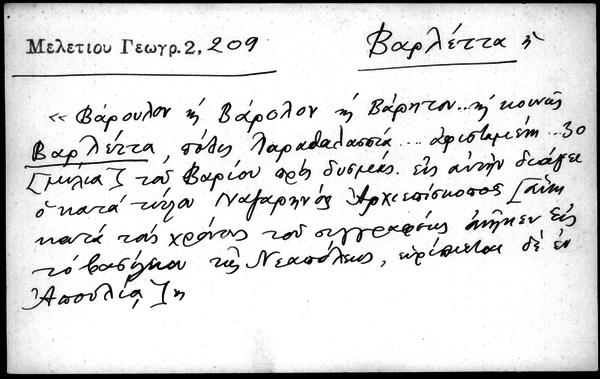 Μελετίου Γεωγρ. 2, 209
Βαρλέττα ἡ
« Βάρουλον ἢ Βάρολον ἢ Βάρητον... ἢ κοινῶς
Βαρλέττα, πόλις παραθαλασσία.... ἀφισταμένη... 30
[μίλια] τοῦ Βαρίου πρὸς δυσμάς. εἰς αὐτὴν διάγει
ὁ κατὰ τίτλον Ναζαρηνὸς Ἀρχιεπίσκοπος [αὕτη
κατὰ τοὺς χρόνους τοῦ συγγραφέως ἀνῆκεν εἰς
τὸ βασίλειον τῆς Νεαπόλεως, εὑρίσκεται δὲ ἐν
Ἀπουλίᾳ]»